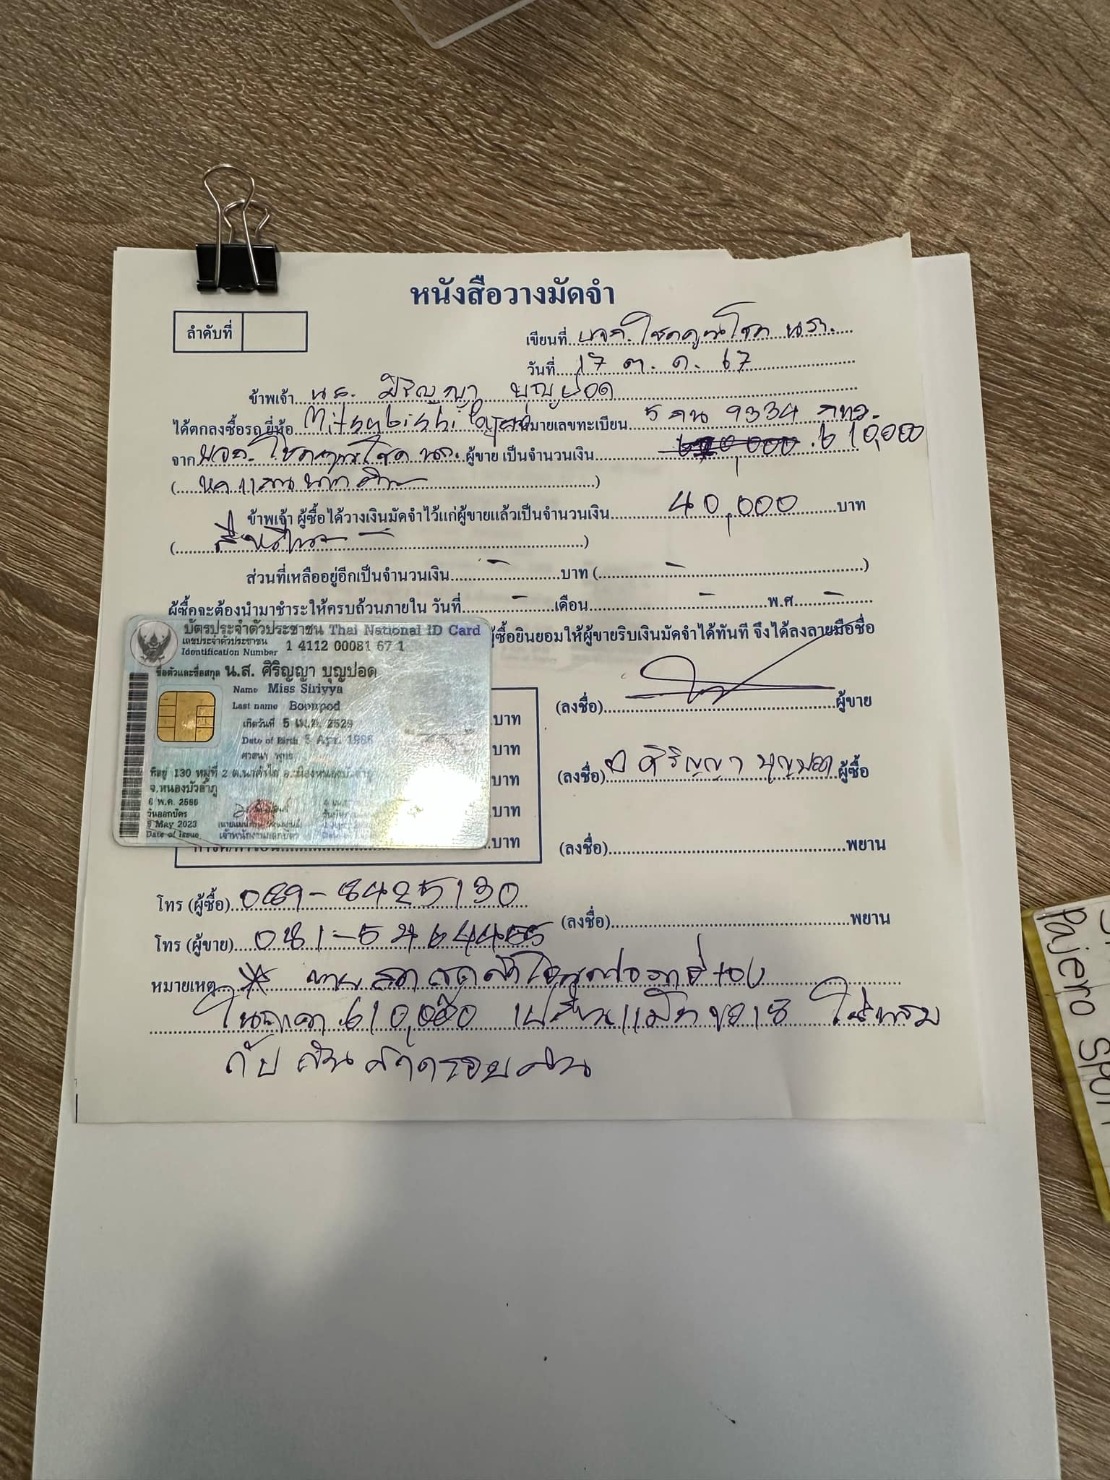 หนังสือวางมัดจำ
ลำดับที่
เขียนที่ หจก. โชคคูณโชค
วันที่ 17 ต. ค. 67
ข้าพเจ้า น.ส. ศิริญญา บุญปอด
ได้ตกลงซื้อรถยี่ห้อ Mitsubishi ปาเจโร่ หมายเลขทะเบียน 5 ขน 9334 กทม.
จาก หจก. โชคคูณโชค ผู้ขาย เป็นจำนวนเงิน 610,000
( หกแสน )
ข้าพเจ้า ผู้ซื้อได้วางเงินมัดจำไว้แก่ผู้ขายแล้วเป็นจำนวนเงิน 40,000 บาท
( สี่หมื่น )
ส่วนที่เหลืออยู่อีกเป็นจำนวนเงิน - บาท ( - )
ผู้ซื้อจะต้องนำมาชำระให้ครบถ้วนภายใน วันที่ - เดือน - พ.ศ. -
ผู้ซื้อยินยอมให้ผู้ขายริบเงินมัดจำได้ทันที จึงได้ลงลายมือชื่อ
บัตรประจำตัวประชาชน Thai National ID Card
เลขประจำตัวประชาชน
Identification Number 1 4112 00081 67 1
ชื่อตัวและชื่อสกุล น.ส. ศิริญญา บุญปอด
Name Miss Siriyya
Last name Boonpod
เกิดวันที่ 5 เม.ย. 2529
Date of Birth 5 Apr. 1986
ศาสนา พุทธ
ที่อยู่ 130 หมู่ที่ 2 ต.นาคำไฮ อ.เมืองหนองบัวลำภู
จ.หนองบัวลำภู
พ.ค. 2566
วันออกบัตร
May 2023
Date of Issue
เจ้าพนักงานออกบัตร
บาท
บาท
บาท
บาท
บาท
(ลงชื่อ) ผู้ขาย
(ลงชื่อ) ศิริญญา บุญปอด ผู้ซื้อ
(ลงชื่อ) พยาน
(ลงชื่อ) พยาน
โทร (ผู้ซื้อ) 089-8425130
โทร (ผู้ขาย) 081-5464455
หมายเหตุ *
610,000
Pajero SPORT